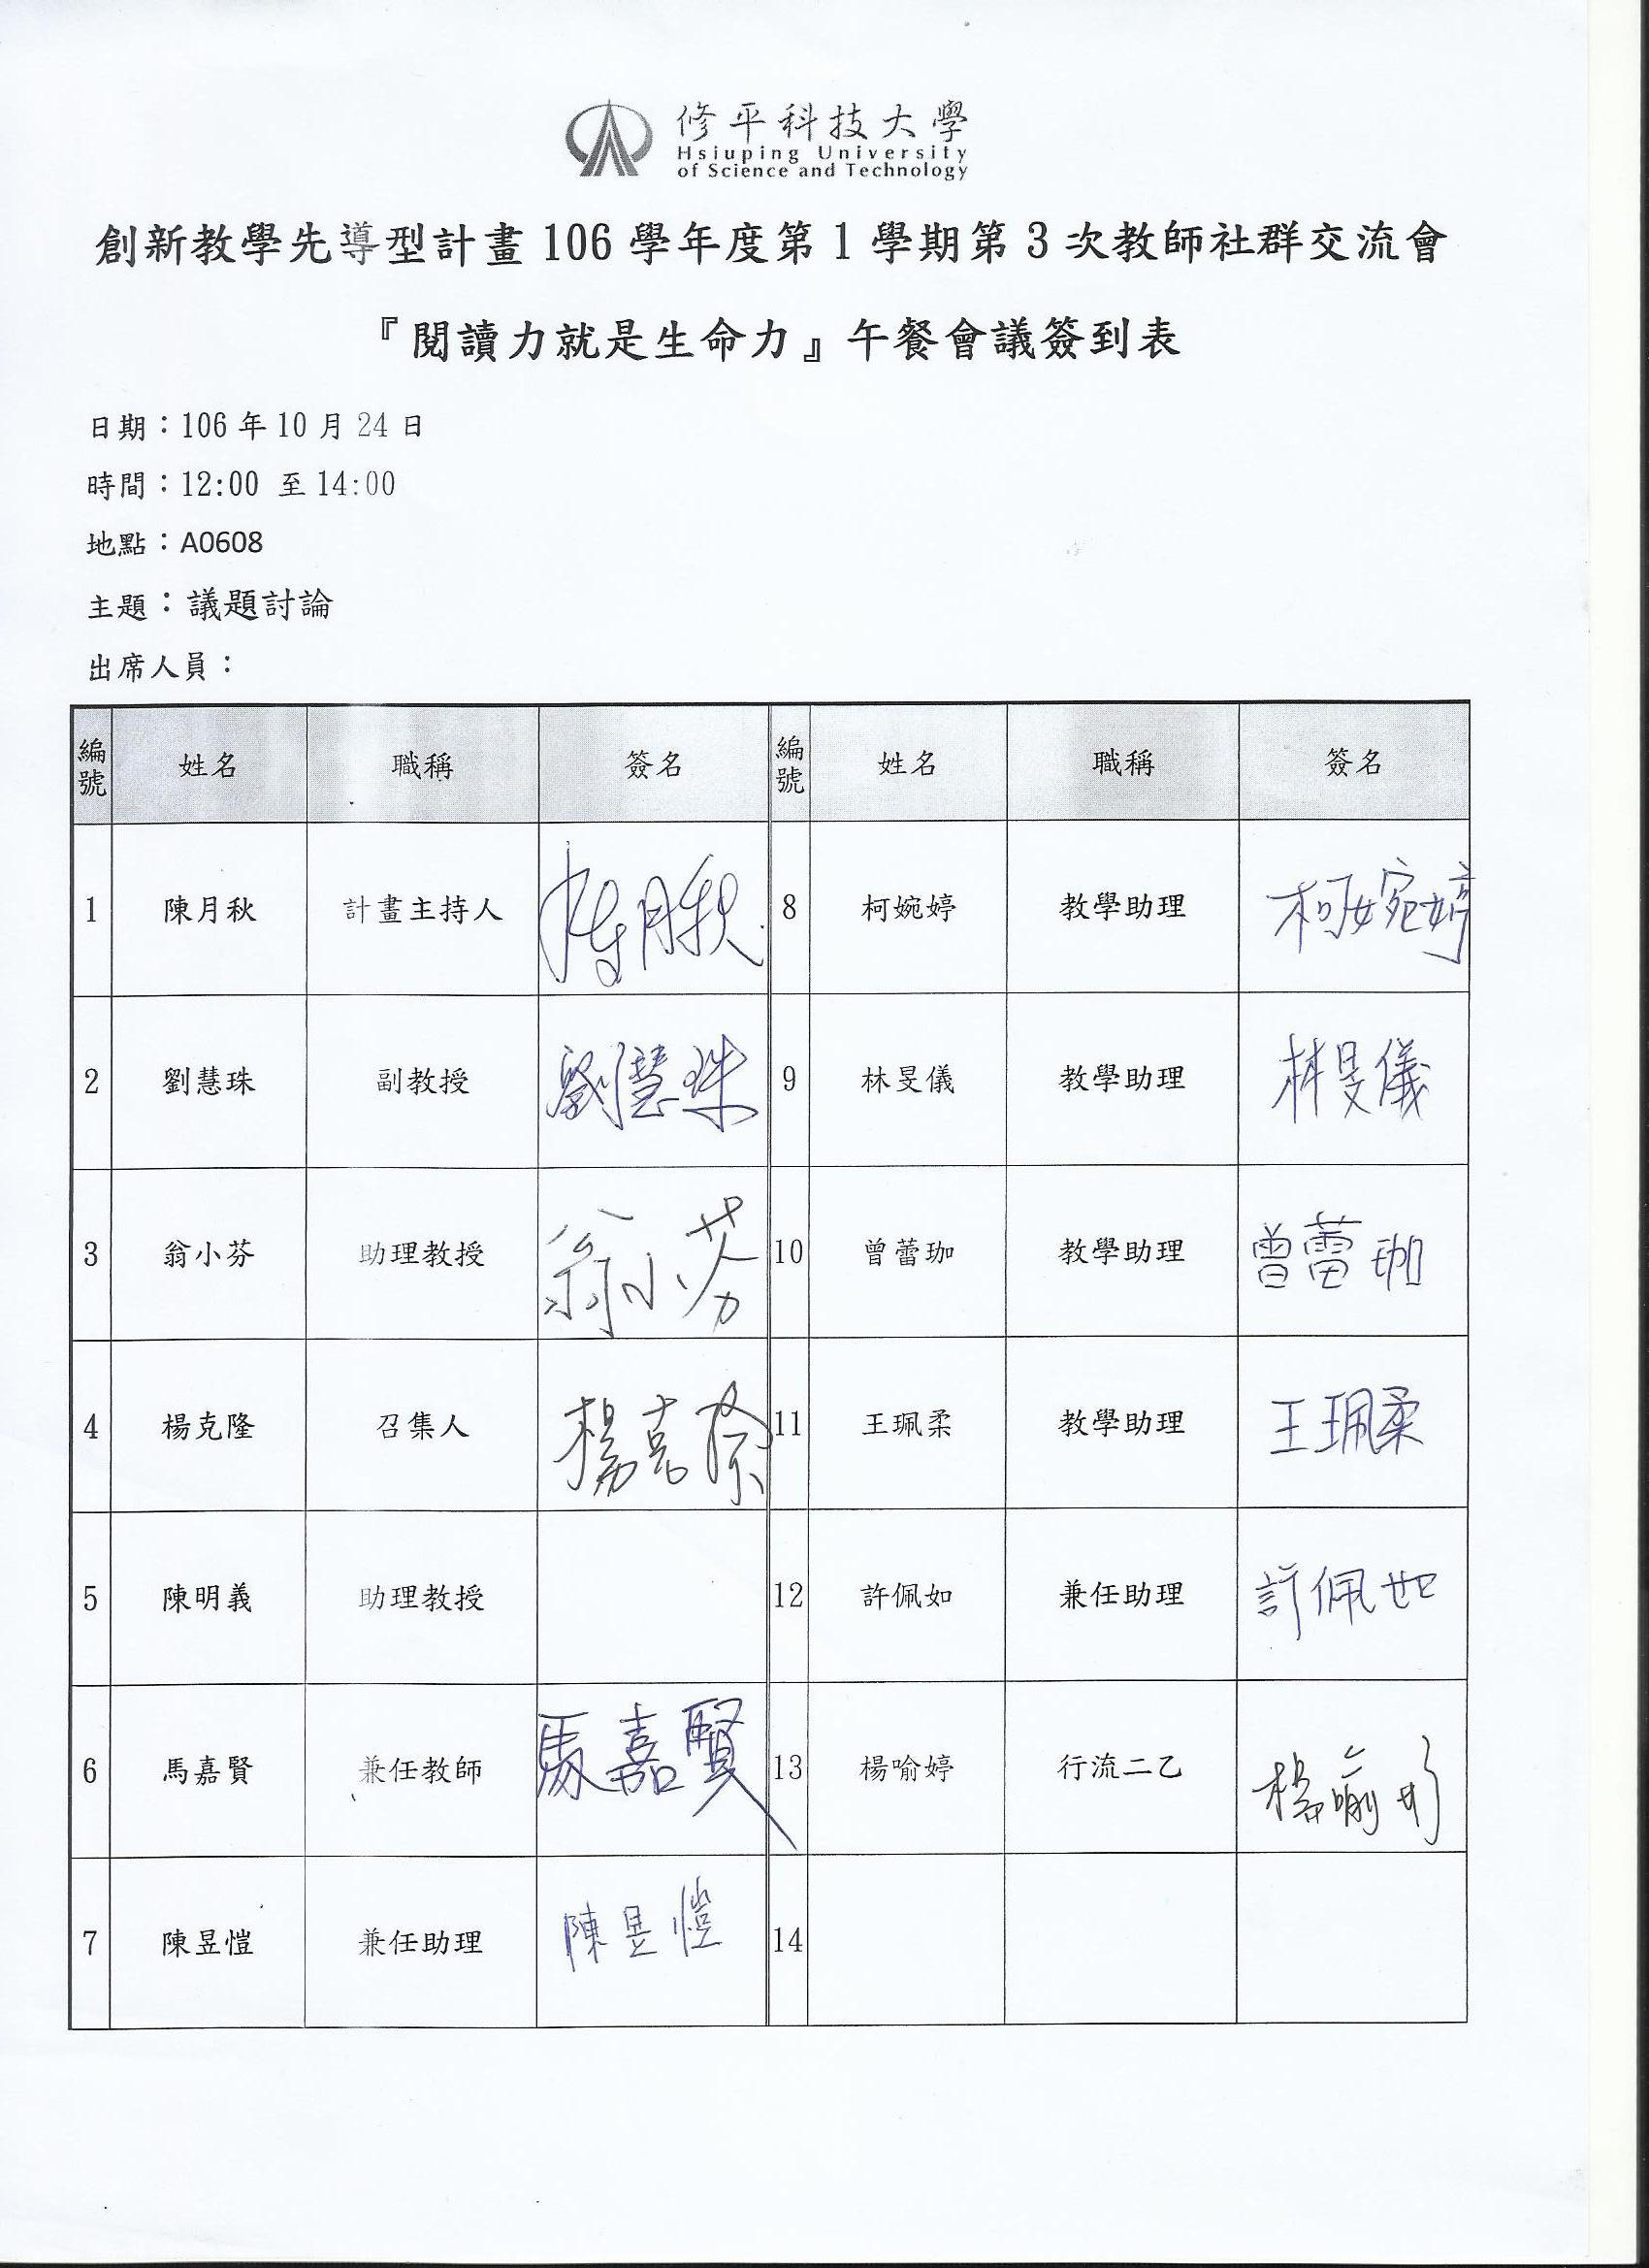 修平科技大學
Hsiuping University
of Science and Technology
創新教學先導型計畫 106 學年度第 1 學期第 3 次教師社群交流會
『閱讀力就是生命力』午餐會議簽到表
日期：106 年 10 月 24 日
時間：12:00 至 14:00
地點：A0608
主題：議題討論
出席人員：
編號 姓名 職稱 簽名 編號 姓名 職稱 簽名
1 陳月秋 計畫主持人 陳月秋 8 柯婉婷 教學助理 柯婉婷
2 劉慧珠 副教授 劉慧珠 9 林旻儀 教學助理 林旻儀
3 翁小芬 助理教授 翁小芬 10 曾蕾珈 教學助理 曾蕾珈
4 楊克隆 召集人 11 王珮柔 教學助理 王珮柔
5 陳明義 助理教授 12 許佩如 兼任助理 許佩如
6 馬嘉賢 兼任教師 馬嘉賢 13 楊喻婷 行流二乙 楊喻婷
7 陳昱愷 兼任助理 陳昱愷 14